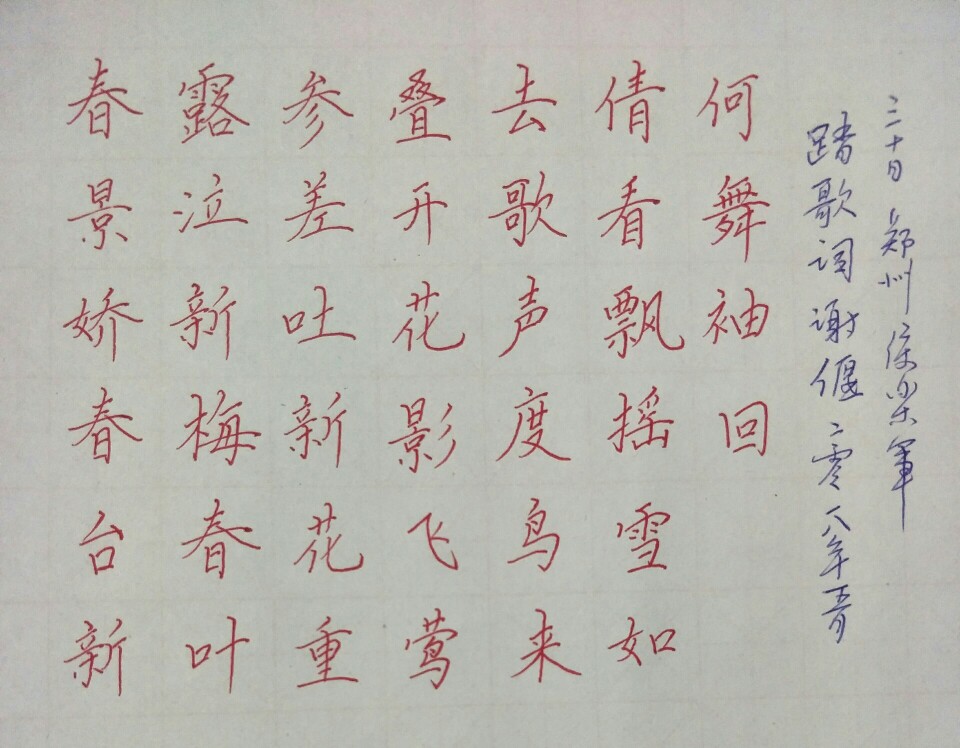 春景娇春台新
露泣新梅春叶
参差吐新花重
叠开花影飞莺
去歌声度鸟来
倩看飘摇雪如
何舞袖回
踏歌词谢偃二零一八年五月
三十日 郑州 樂軍